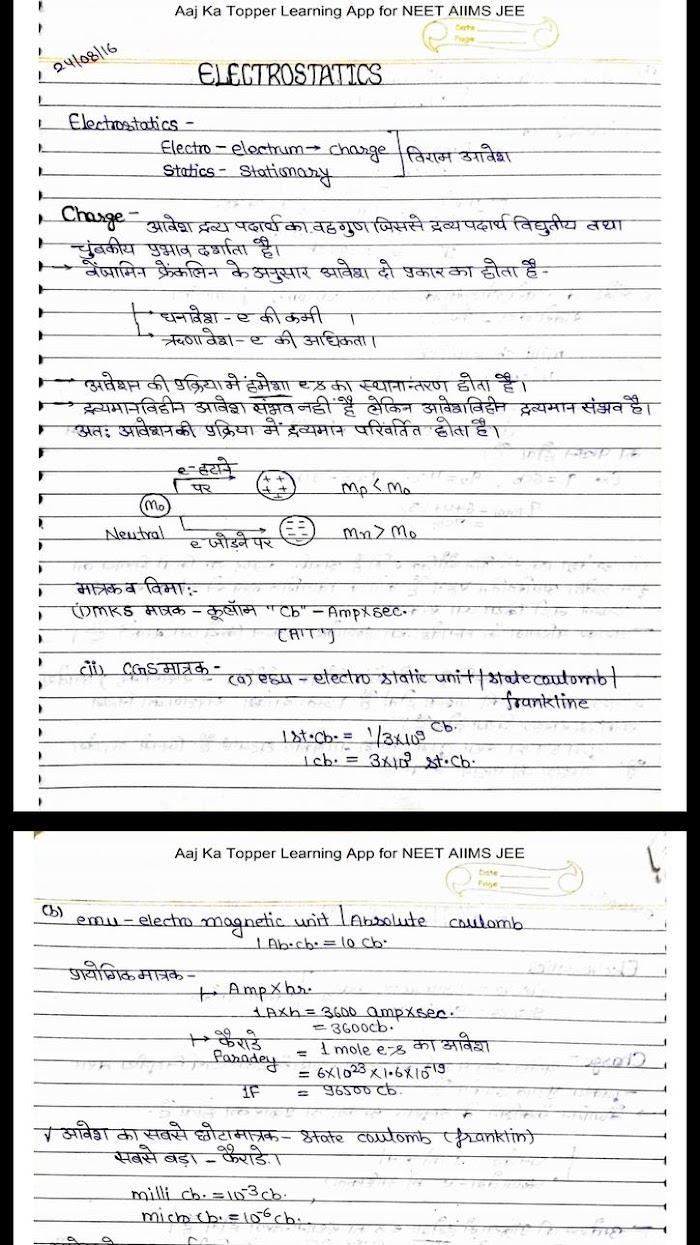 Aaj Ka Topper Learning App for NEET AIIMS JEE
Date
Page
24/08/16
ELECTROSTATICS
Electrostatics -
Electro - electrum → charge
Statics - Stationary
विराम आवेश
Charge - आवेश द्रव्य पदार्थ का वह गुण जिससे द्रव्य पदार्थ विद्युतीय तथा
चुंबकीय प्रभाव दर्शाता है।
→ बेंजामिन फ्रेंकलिन के अनुसार आवेश दो प्रकार का होता है -
धनावेश - e की कमी ।
ऋणावेश - e की अधिकता।
→ आवेशन की प्रक्रिया में हमेशा e-s का स्थानान्तरण होता है।
→ द्रव्यमानविहीन आवेश संभव नहीं है लेकिन आवेशविहीन द्रव्यमान संभव है।
अतः आवेशन की प्रक्रिया में द्रव्यमान परिवर्तित होता है।
e- हटाने
पर
++
++
mp < mo
mo
Neutral
e जोडने पर
mn > mo
मात्रक व विमा :-
(i) MKS मात्रक - कूलॉम "Cb" - Amp×sec.
[A'T']
(ii) CGS मात्रक - (a) esu - electro static unit | state coulomb |
frankline
1 st.Cb. = 1/3×10⁹ Cb.
1 cb. = 3×10⁹ st.Cb.
Aaj Ka Topper Learning App for NEET AIIMS JEE
Date
Page
(b) emu - electro magnetic unit | Absolute coulomb
1 Ab.cb. = 10 Cb.
प्रायोगिक मात्रक -
→ Amp×hr.
1A×h = 3600 amp×sec.
= 3600cb.
→ फैराडे
Faradey = 1 mole e-s का आवेश
= 6×10²³ × 1.6×10⁻¹⁹
1F = 96500 Cb.
✓ आवेश का सबसे छोटा मात्रक - State coulomb (franklin)
सबसे बड़ा - फैराडे।
milli cb. = 10⁻³ cb.
micro cb. = 10⁻⁶ cb.